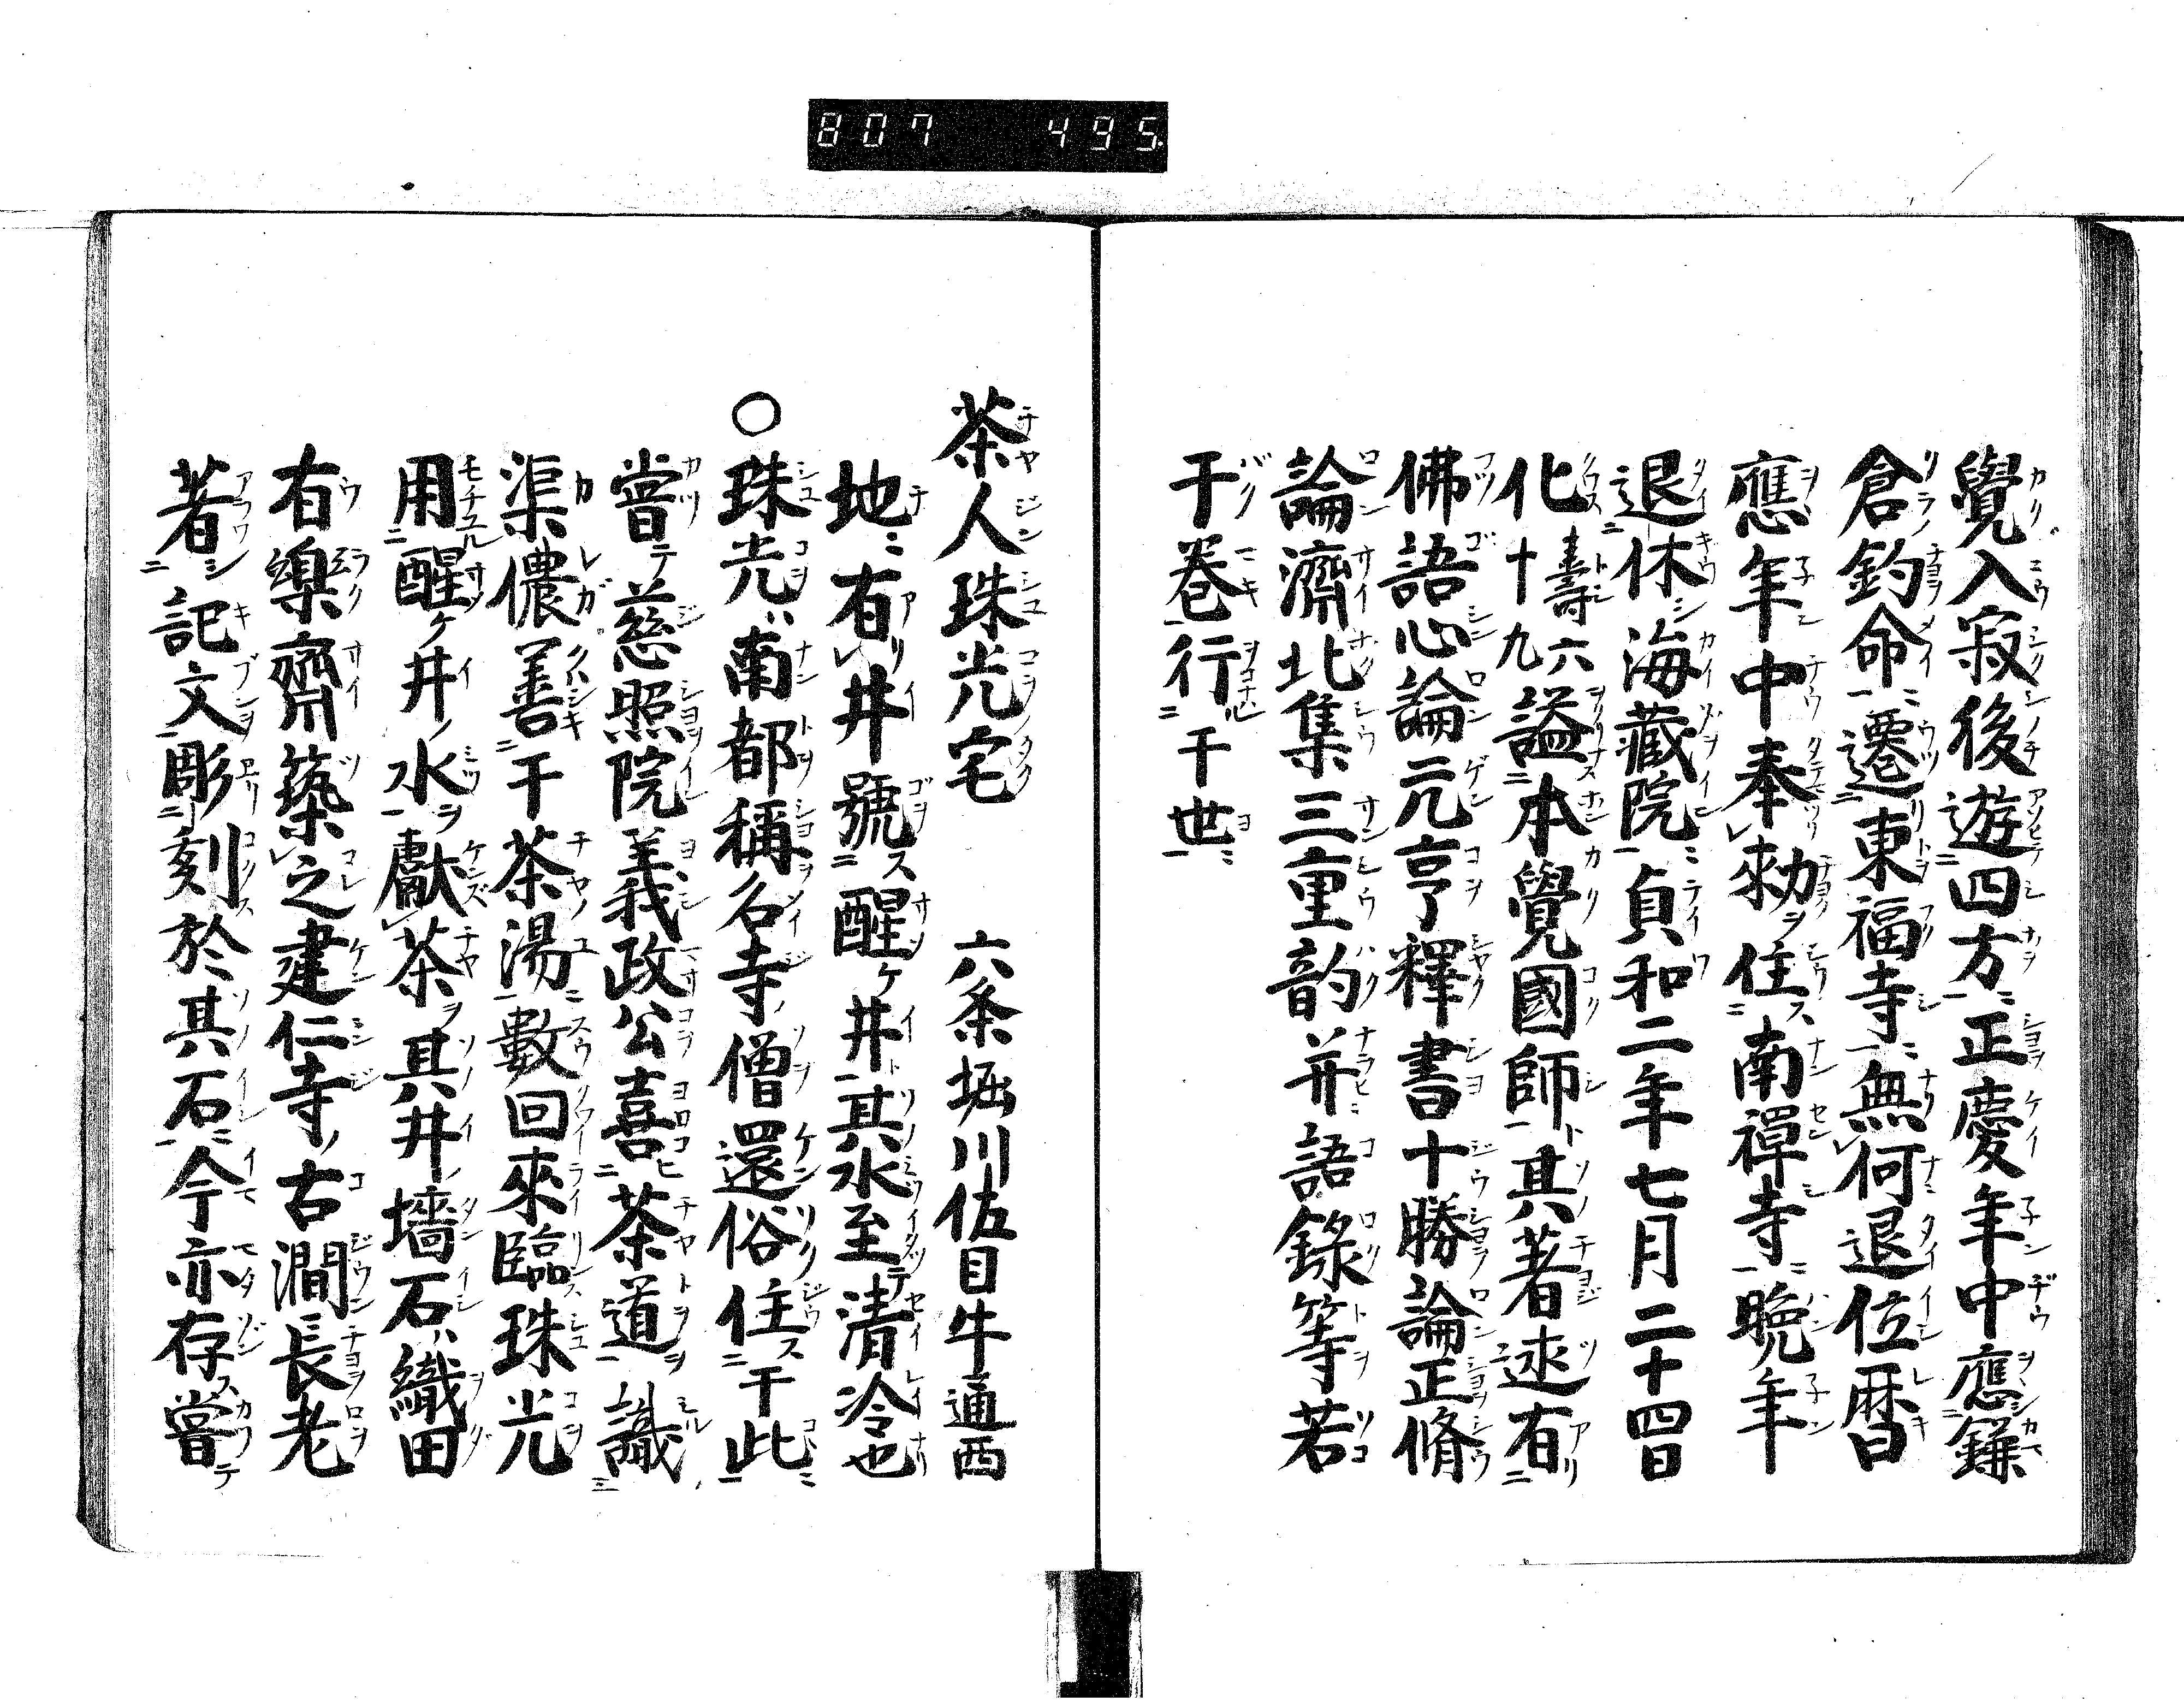 807 495
覺入寂後遊四方正慶年中應鎌
倉釣命遷東福寺無何退位曆
應年中奉勅住南禪寺晩年
退休海藏院貞和二年七月二十四日
化壽六十九謚本覺國師其著述有
佛語心論元亨釋書十勝論正脩
論濟北集三重韵并語錄等若
干卷行于世
茶人珠光宅 六条堀川佐目牛通西
地有井號醒ケ井其水至清冷也
○珠光南都稱名寺僧還俗住于此
嘗慈照院義政公喜茶道識
渠儂善于茶湯數回來臨珠光
用醒ケ井水獻茶其井墻石織田
有樂齋築之建仁寺古澗長老
著記文彫刻於其石今亦存嘗